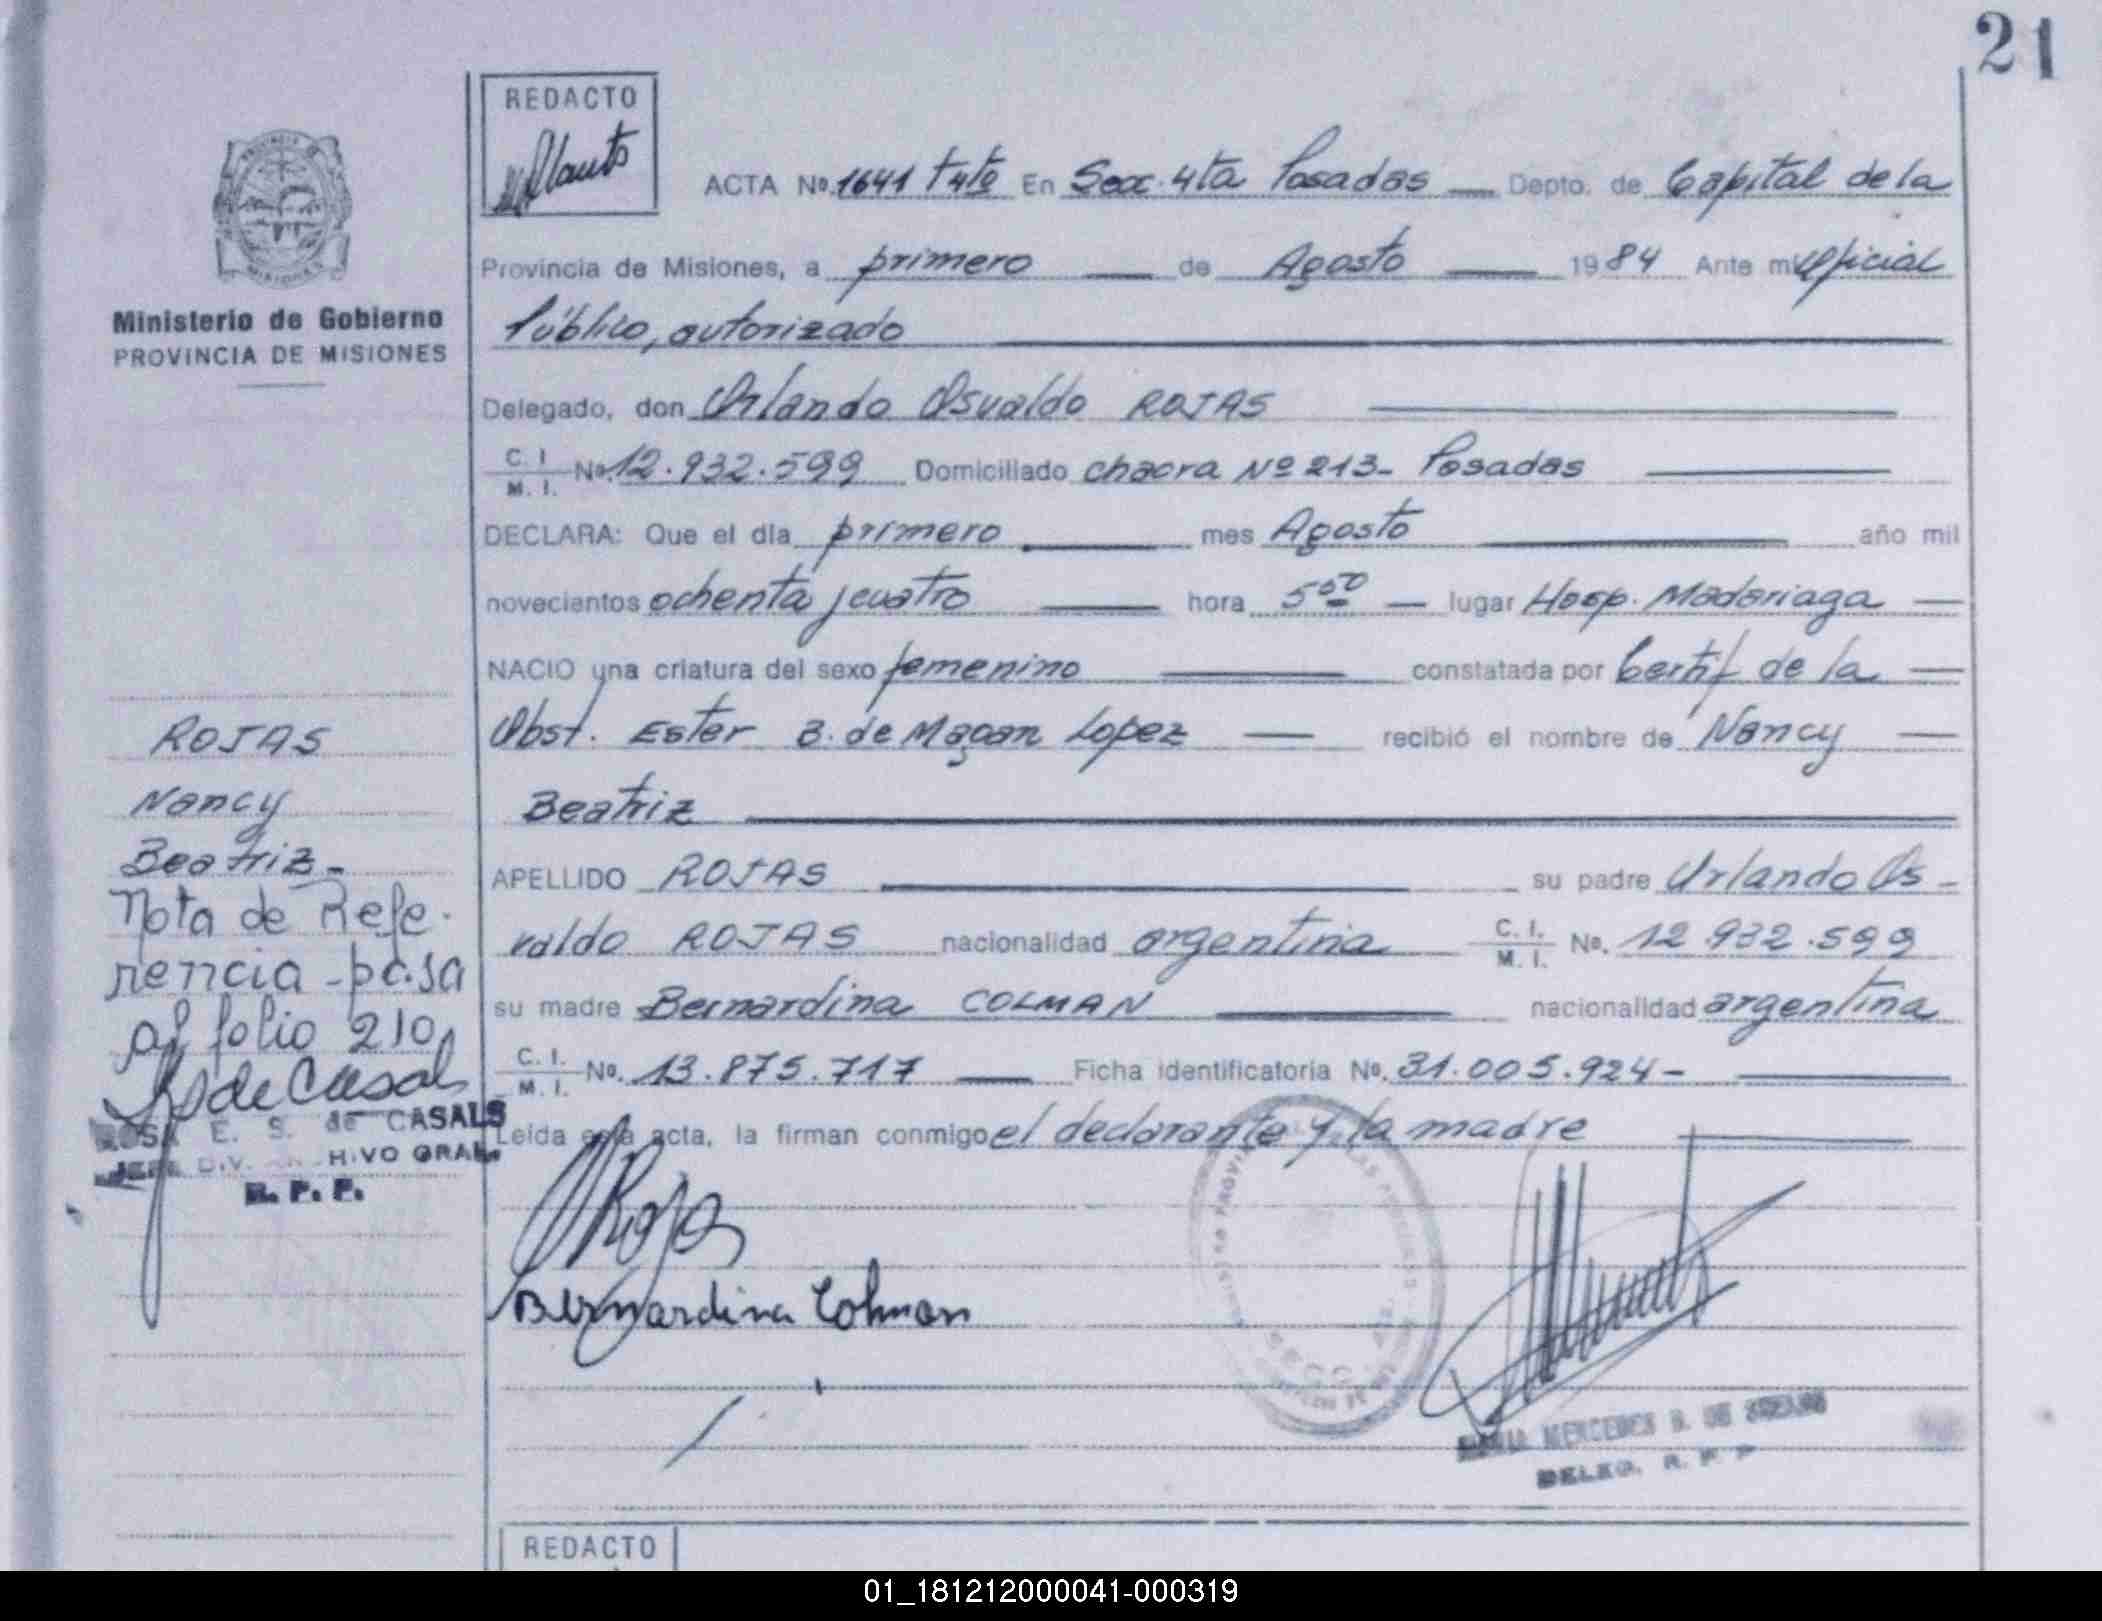 21
REDACTO
ACTA No. 1641 T4to En Secc. 4ta Posadas Depto. de Capital de la
Provincia de Misiones, a primero de Agosto 1984 Ante mi Oficial
Público, autorizado
Delegado, don Orlando Osvaldo ROJAS
C. I. M. I. No. 12.932.599 Domiciliado chacra Nº 213- Posadas
DECLARA: Que el día primero mes Agosto año mil
novecientos ochenta y cuatro hora 5 00 lugar Hosp. Madariaga
NACIO una criatura del sexo femenino constatada por Certif de la
Obst. Ester B. de Lopez recibió el nombre de Nancy
Beatriz
APELLIDO ROJAS su padre Orlando Os-
valdo ROJAS nacionalidad argentina C. I. M. I. No. 12.932.599
su madre Bernardina COLMAN nacionalidad argentina
C. I. M. I. No. 13.875.717 Ficha identificatoria No. 31.005.924-
Leída esta acta, la firman conmigo el declarante y la madre
ORojas
Bernardina Colman
MERCEDES B. DE
DELEG. R. P. P.
Ministerio de Gobierno
PROVINCIA DE MISIONES
ROJAS
Nancy
Beatriz-
Nota de Refe-
rencia - pasa
al folio 210
de Casals
ROSA E. S. de CASALS
JEFE DIV. ARCHIVO GRAL.
R. P. P.
REDACTO
01_181212000041-000319